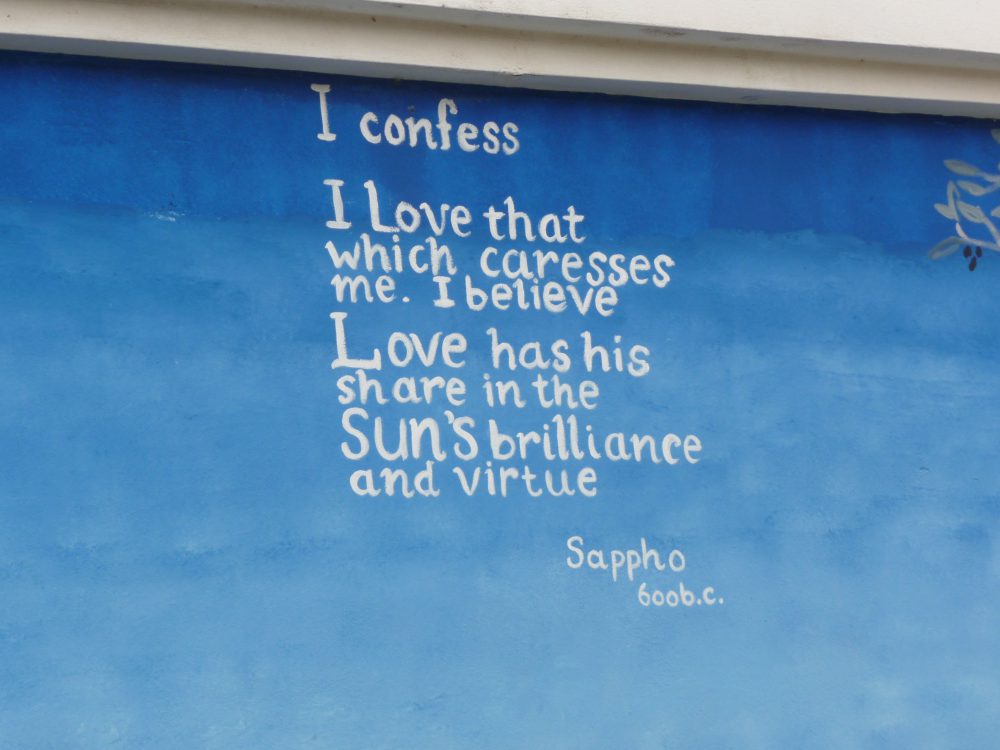 I confess
I Love that
which caresses
me. I believe
Love has his
share in the
Sun's brilliance
and virtue
Sappho
600b.c.